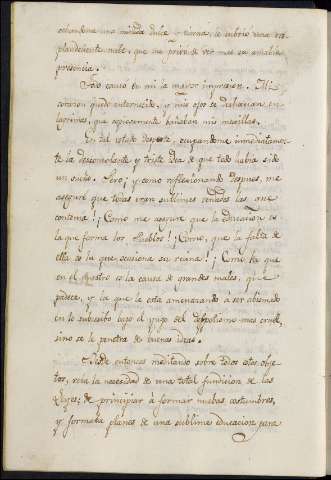 echandome una mirada dulce y tierna, le cubrió una res
plandeciente nube, que me privó de ver mas su amable
presencia.
Todo causó en mi la mayor impresion. Mi
corazon quedó enternecido, y mis ojos se deshacian en
lagrimas, que copiosamente bañaban mis mexillas.
En tal estado desperté, ocupandome inmediatamen-
te la desconsolante y triste idea de que todo habia sido
un sueño. Pero, ¡y como reflexionando despues, me
aseguré que todas eran sublimes verdades las que
contenia! ¡Como me aseguré que la educacion es
la que forma los Pueblos! ¡Como, que la falta de
ella es la que ocasiona su ruina! ¡Como, la que
en el nuestro es la causa de grandes males, que
padece, y la que le está amenazando á ser abismado
en lo subcesibo bajo el yugo del despotismo mas cruel,
sino se le penetra de buenas ideas.
Desde entonces meditando sobre todos estos obje-
tos, veia la necesidad de una total fundicion de las
Leyes; de principiar á formar nuebas costumbres,
y formaba planes de una sublime educacion para